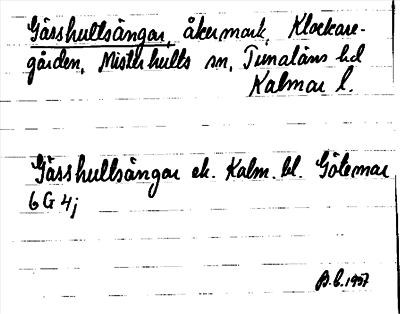 Gässhultsängar, åkermark, Klockare-
gården, Misterhults sn, Tunaläns hd
Kalmar l.
Gässhultsängar ek. Kalm. bl. Götemar
6 G 4j
B.E. 1957